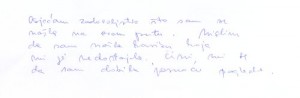 Osjećam zadovoljstvo što sam se
našla na ovom putu. Mislim
da sam našla basicu koja
mi je nedostajala. Čini mi se
da sam dobila pomoću pogleda.